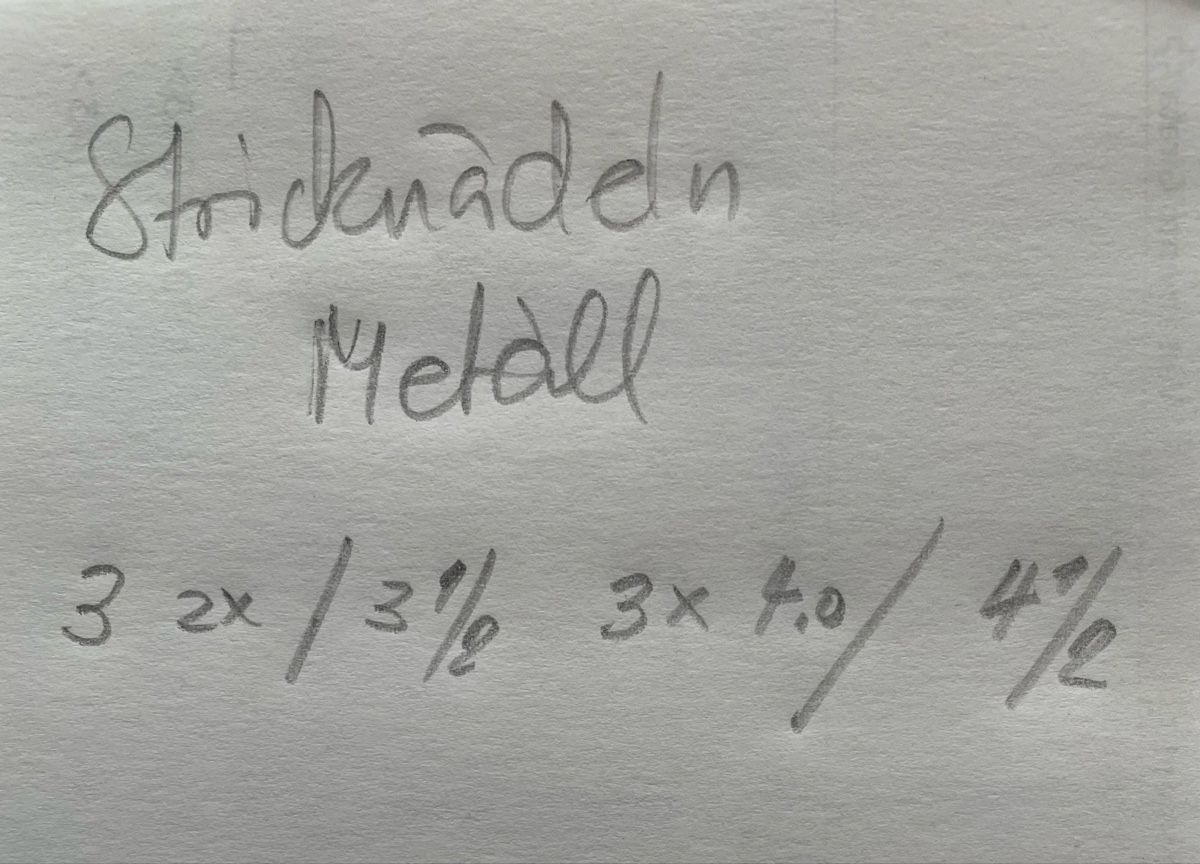 Stricknadeln
Metall
3 2x / 3 1/2 3x 4.0 / 4 1/2